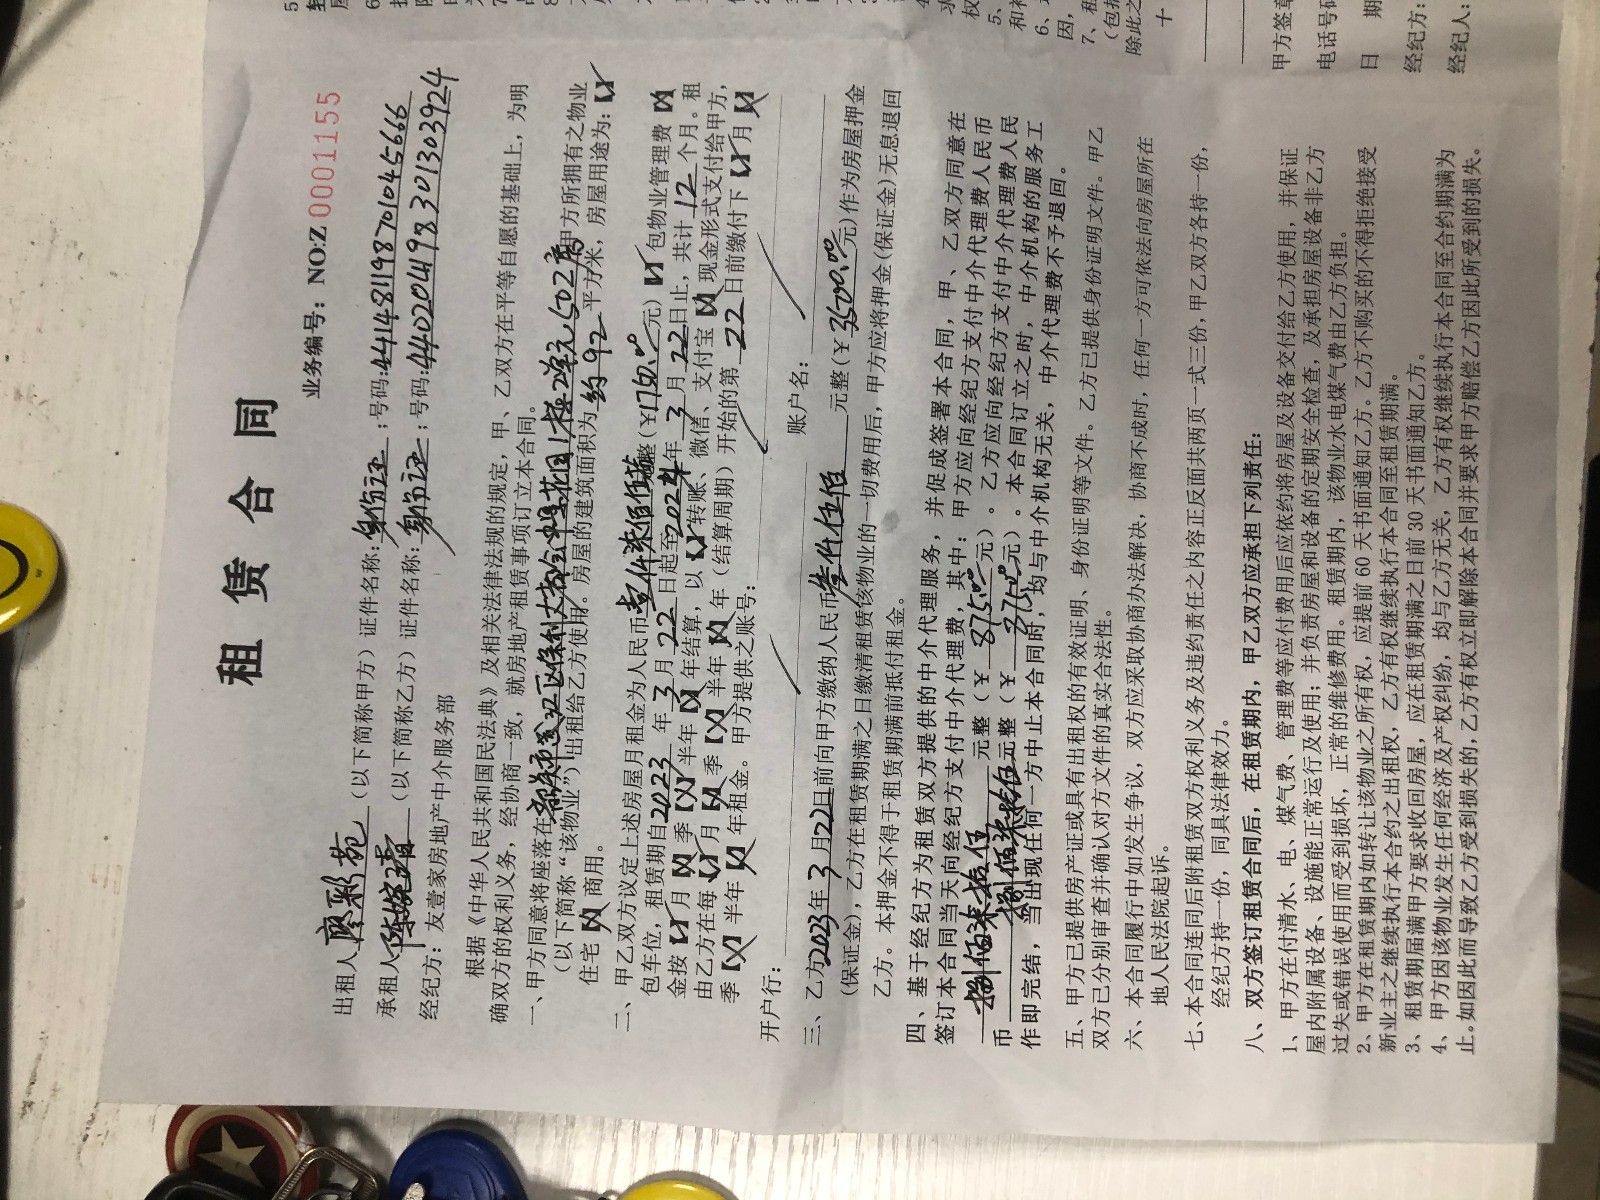 租赁合同
业务编号：NO:Z0001155
出租人廖彩苑（以下简称甲方）证件名称:身份证:号码:441481198701045666
承租人（以下简称乙方）证件名称:身份证:号码:440204198301303924
经纪方：友壹家房地产中介服务部
根据《中华人民共和国民法典》及相关法律法规的规定，甲、乙双方在平等自愿的基础上，为明
确双方的权利义务，经协商一致，就房地产租赁事项订立本合同。
一、甲方同意将座落在 区保利大都会 花园1栋2单元502房甲方所拥有之物业
（以下简称“该物业”）出租给乙方使用。房屋的建筑面积为约92平方米，房屋用途为:【√】
住宅【×】商用。
二、甲乙双方议定上述房屋月租金为人民币壹仟柒佰伍拾整(￥1750.00元)【√】包物业管理费【×】
包车位，租赁期自2023年3月22日起至2024年3月22日止，共计12个月。租
金按【√】月【×】季【×】半年【×】年结算，以【√】转账、微信、支付宝【×】现金形式支付给甲方，
由乙方在每【√】月【×】季【×】半年【×】年（结算周期）开始的第22日前缴付下【√】月【×】
季【×】半年【×】年租金。甲方提供之账号：
开户行： 账户名：
三、乙方2023年3月22日前向甲方缴纳人民币叁仟伍佰元整(￥3500.00元)作为房屋押金
(保证金)，乙方在租赁期满之日缴清租赁该物业的一切费用后，甲方应将押金(保证金)无息退回
乙方。本押金不得于租赁期满前抵付租金。
四、基于经纪方为租赁双方提供的中介代理服务，并促成签署本合同，甲、乙双方同意在
签订本合同当天向经纪方支付中介代理费，其中：甲方应向经纪方支付中介代理费人民币
捌佰柒拾伍元整（￥875.00元）。乙方应向经纪方支付中介代理费人民
币捌佰柒拾伍元整（￥875.00元）。本合同订立之时，中介机构的服务工
作即完结，当出现任何一方中止本合同时，均与中介机构无关，中介代理费不予退回。
五、甲方已提供房产证或具有出租权的有效证明、身份证明等文件。乙方已提供身份证明文件。甲乙
双方已分别审查并确认对方文件的真实合法性。
六、本合同履行中如发生争议，双方应采取协商办法解决，协商不成时，任何一方可依法向房屋所在
地人民法院起诉。
七、本合同连同后附租赁双方权利义务及违约责任之内容正反面共两页一式三份，甲乙双方各持一份，
经纪方持一份，同具法律效力。
八、双方签订租赁合同后，在租赁期内，甲乙双方应承担下列责任：
1、甲方在付清水、电、煤气费、管理费等应付费用后应依约将房屋及设备交付给乙方使用，并保证
屋内附属设备、设施能正常运行及使用；并负责房屋和设备的定期安全检查，及承担房屋设备非乙方
过失或错误使用而受到损坏，正常的维修费用。租赁期内，该物业水电煤气费由乙方负担。
2、甲方在租赁期内如转让该物业之所有权，应提前60天书面通知乙方。乙方不购买的不得拒绝接受
新业主之继续执行本合约之出租权，乙方有权继续执行本合同至租赁期满。
3、租赁期届满甲方要求收回房屋，应在租赁期满之日前30天书面通知乙方。
4、甲方因该物业发生任何经济及产权纠纷，均与乙方无关，乙方有权继续执行本合同至合约期满为
止。如因此而导致乙方受到损失的，乙方有权立即解除本合同并要求甲方赔偿乙方因此所受到的损失。
5、
和
6、
因，
7、租
(包括
除此之
十
甲方签章
电话号码
日 期
经纪方：
经纪人：